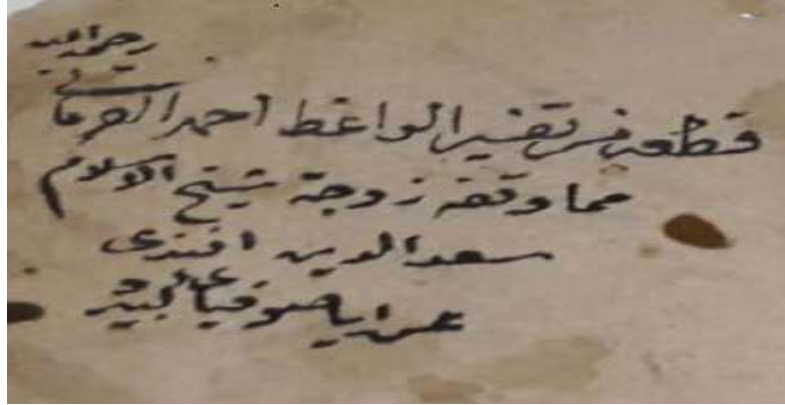 رحمه الله
قطعه من تفسير الواعظ احمد القرمانى
مما وقفه زوجة شيخ الاسلام
سعد الدين افندى
عن ايا صوفيا